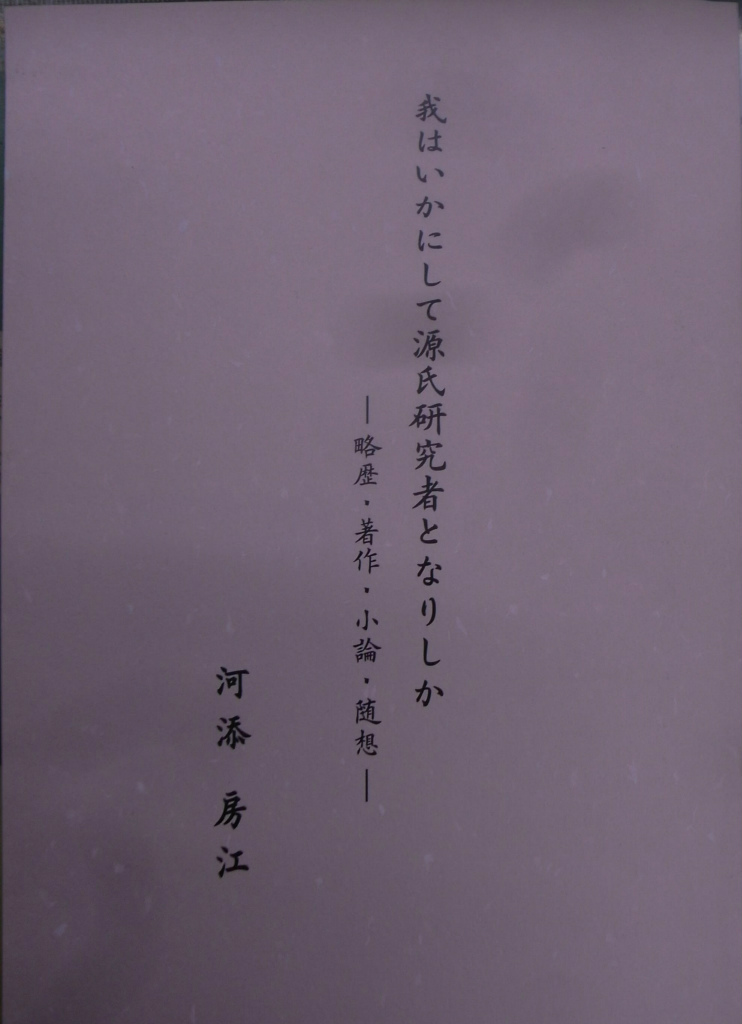 我はいかにして源氏研究者となりしか
―略歴・著作・小論・随想―
河添 房江